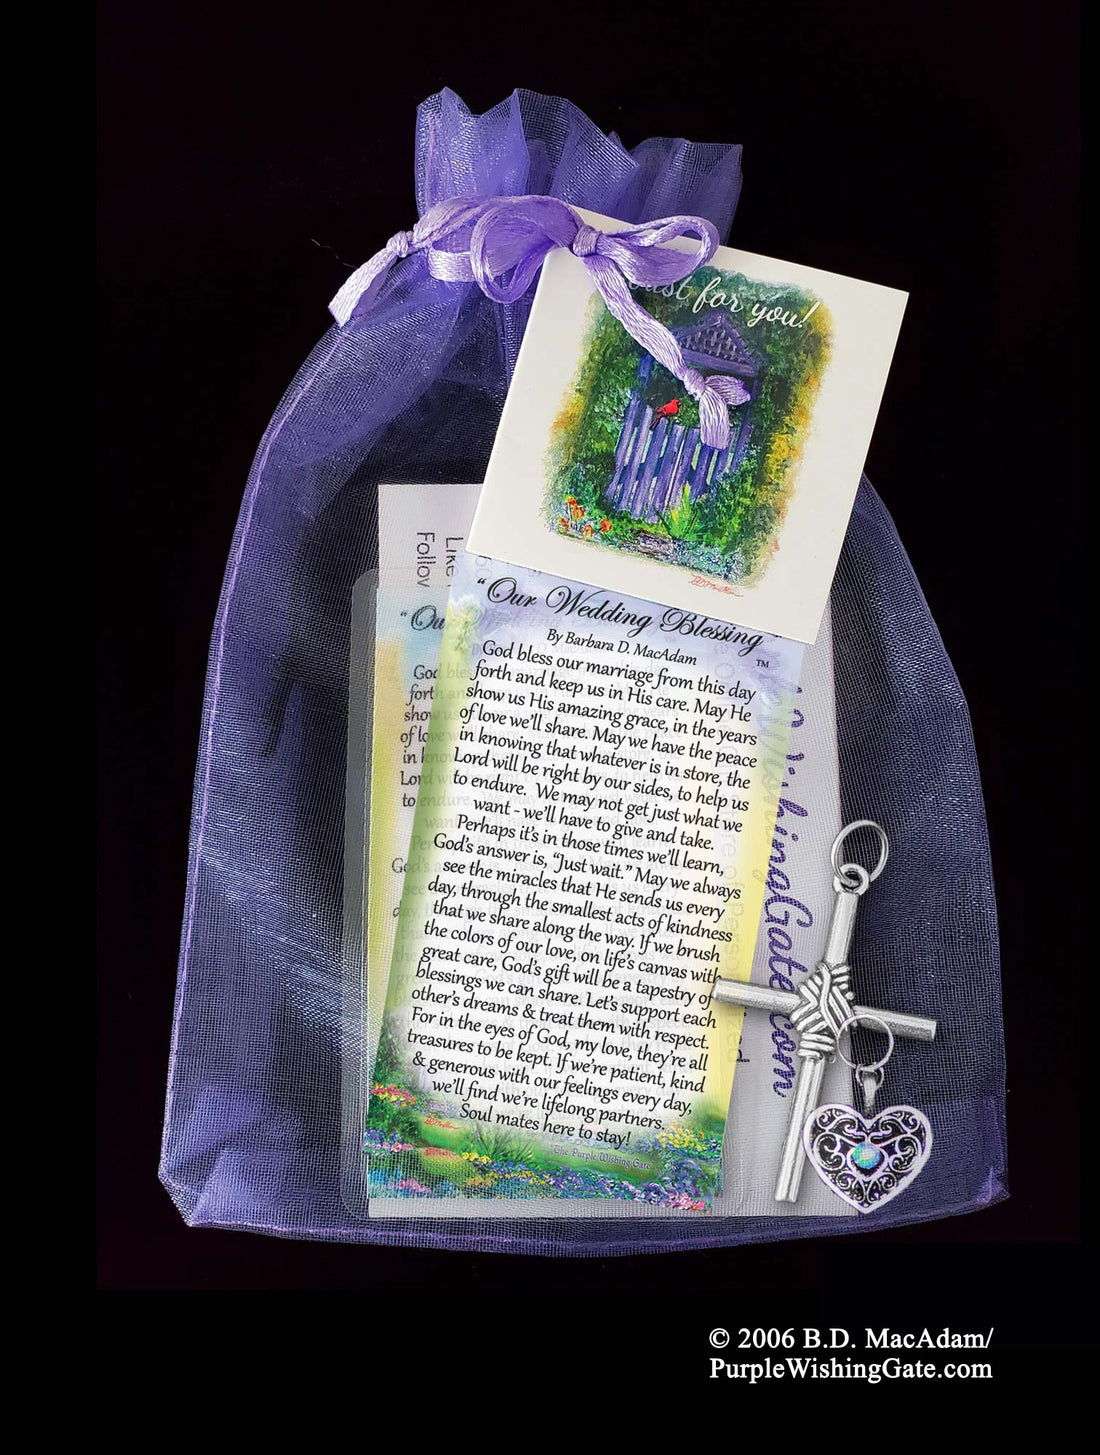 Just for you!
Like
Follow
"Our
"Our Wedding Blessing"
™
By Barbara D. MacAdam
God bless our marriage from this day
forth and keep us in His care. May He
show us His amazing grace, in the years
of love we'll share. May we have the peace
in knowing that whatever is in store, the
Lord will be right by our sides, to help us
to endure. We may not get just what we
want - we'll have to give and take.
Perhaps it's in those times we'll learn,
God's answer is, "Just wait." May we always
see the miracles that He sends us every
day, through the smallest acts of kindness
that we share along the way. If we brush
the colors of our love, on life's canvas with
great care, God's gift will be a tapestry of
blessings we can share. Let's support each
other's dreams & treat them with respect.
For in the eyes of God, my love, they're all
treasures to be kept. If we're patient, kind
& generous with our feelings every day,
we'll find we're lifelong partners.
Soul mates here to stay!
The Purple Wishing Gate
WishingGate.com
© 2006 B.D. MacAdam/
PurpleWishingGate.com